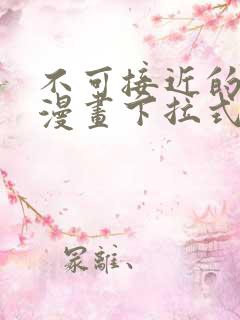 不可接近的
漫畫下拉式
冢離、